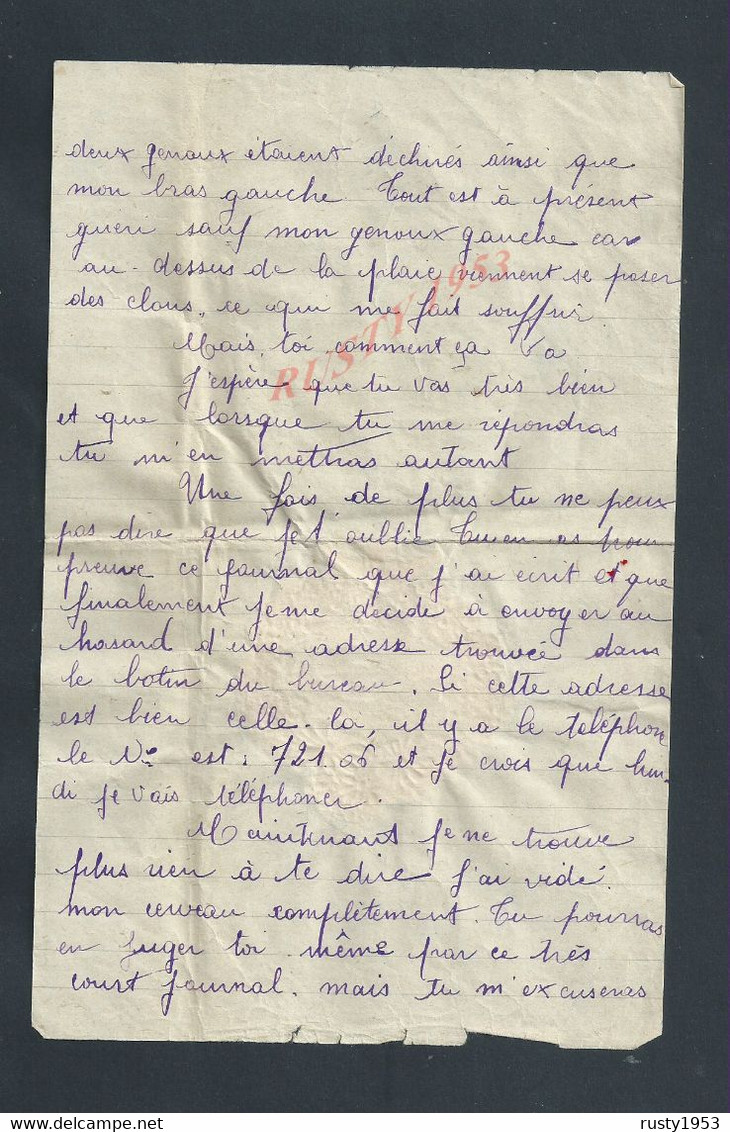 deux genoux étaient déchirés ainsi que
mon bras gauche. Tout est à présent
guéri sauf mon genoux gauche car
au-dessus de la plaie viennent se poser
des clous, ce qui me fait souffrir.
Mais, toi, comment ça va
J'espère que tu vas très bien
et que lorsque tu me répondras
tu m'en mettras autant
Une fois de plus tu ne peux
pas dire que je t'oublie. Tu en as pour
preuve ce journal que j'ai écrit et que
finalement je me décide à envoyer au
hasard d'une adresse trouvée dans
le botin du bureau. Si cette adresse
est bien celle-là, il y a le téléphone
le No est : 721.06 et je crois que lun-
di je vais téléphoner.
Maintenant je ne trouve
plus rien à te dire j'ai vidé
mon cerveau complètement. Tu pourras
en juger toi même par ce très
court journal. mais tu m'excuseras
RUSTY 1953
delcampe.net
rusty1953